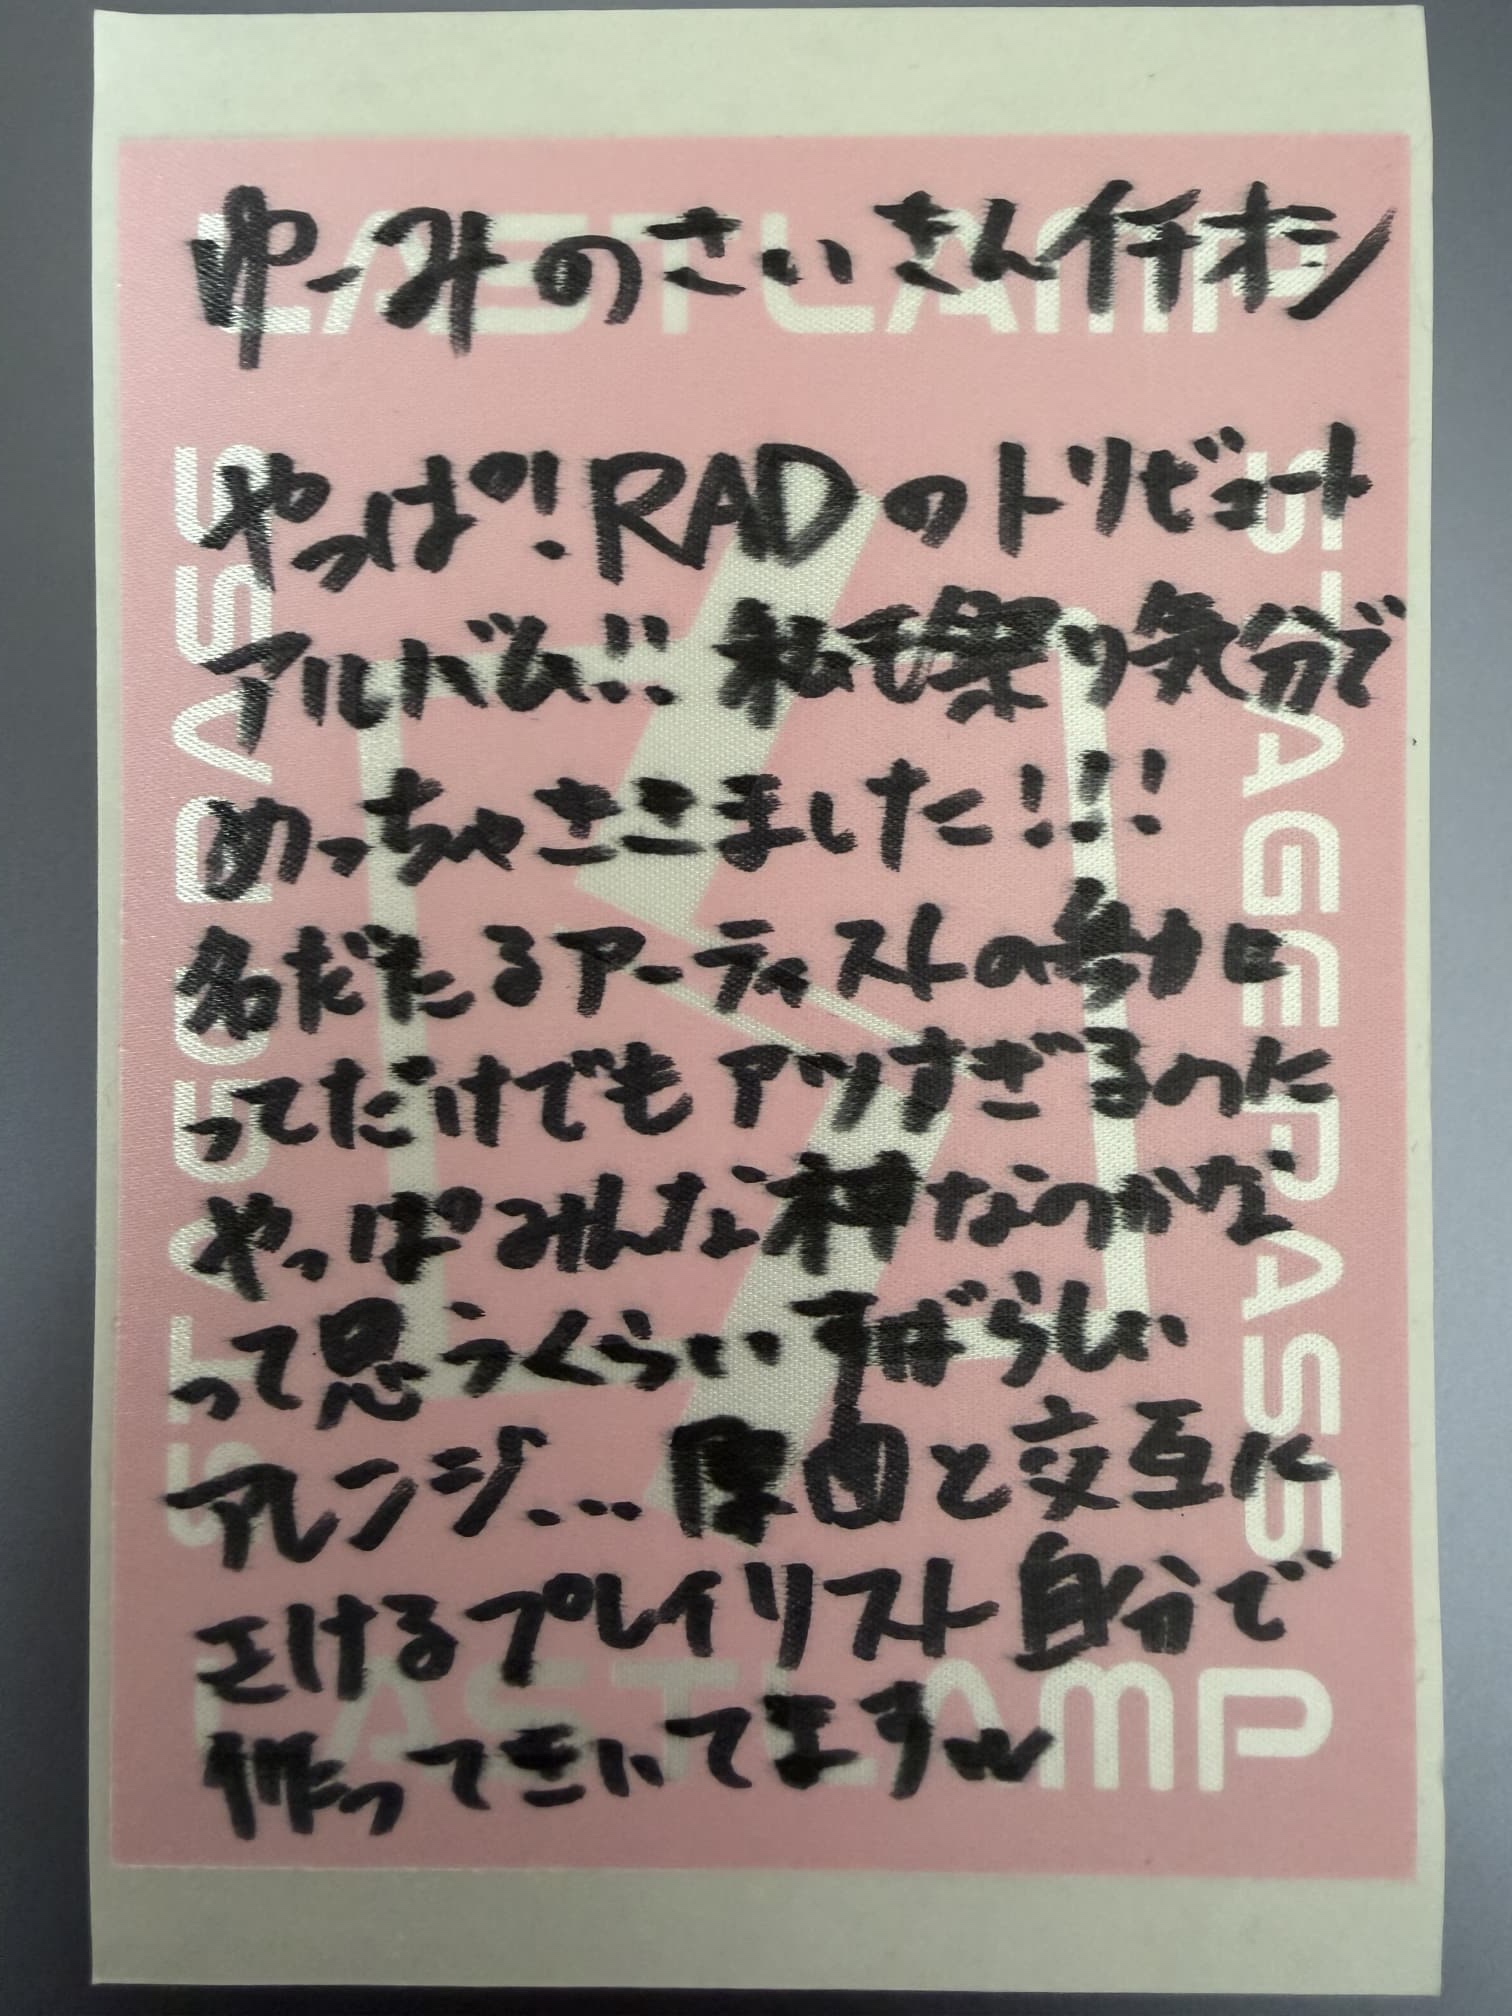 LASTLAMP
ゆーみのさいさんイチオシ
STAGE PASS
STAGE PASS
やっぱ!RADのトリビュート
アルバム!! 私も祭り気分で
めっちゃききました!!!
名だたるアーティストの参加
ってだけでもアツすぎるのに
やっぱみんな神なのかな
って思うくらいすばらしい
アレンジ... 原曲と交互に
きけるプレイリスト自分で
作ってきいてますw
LASTLAMP